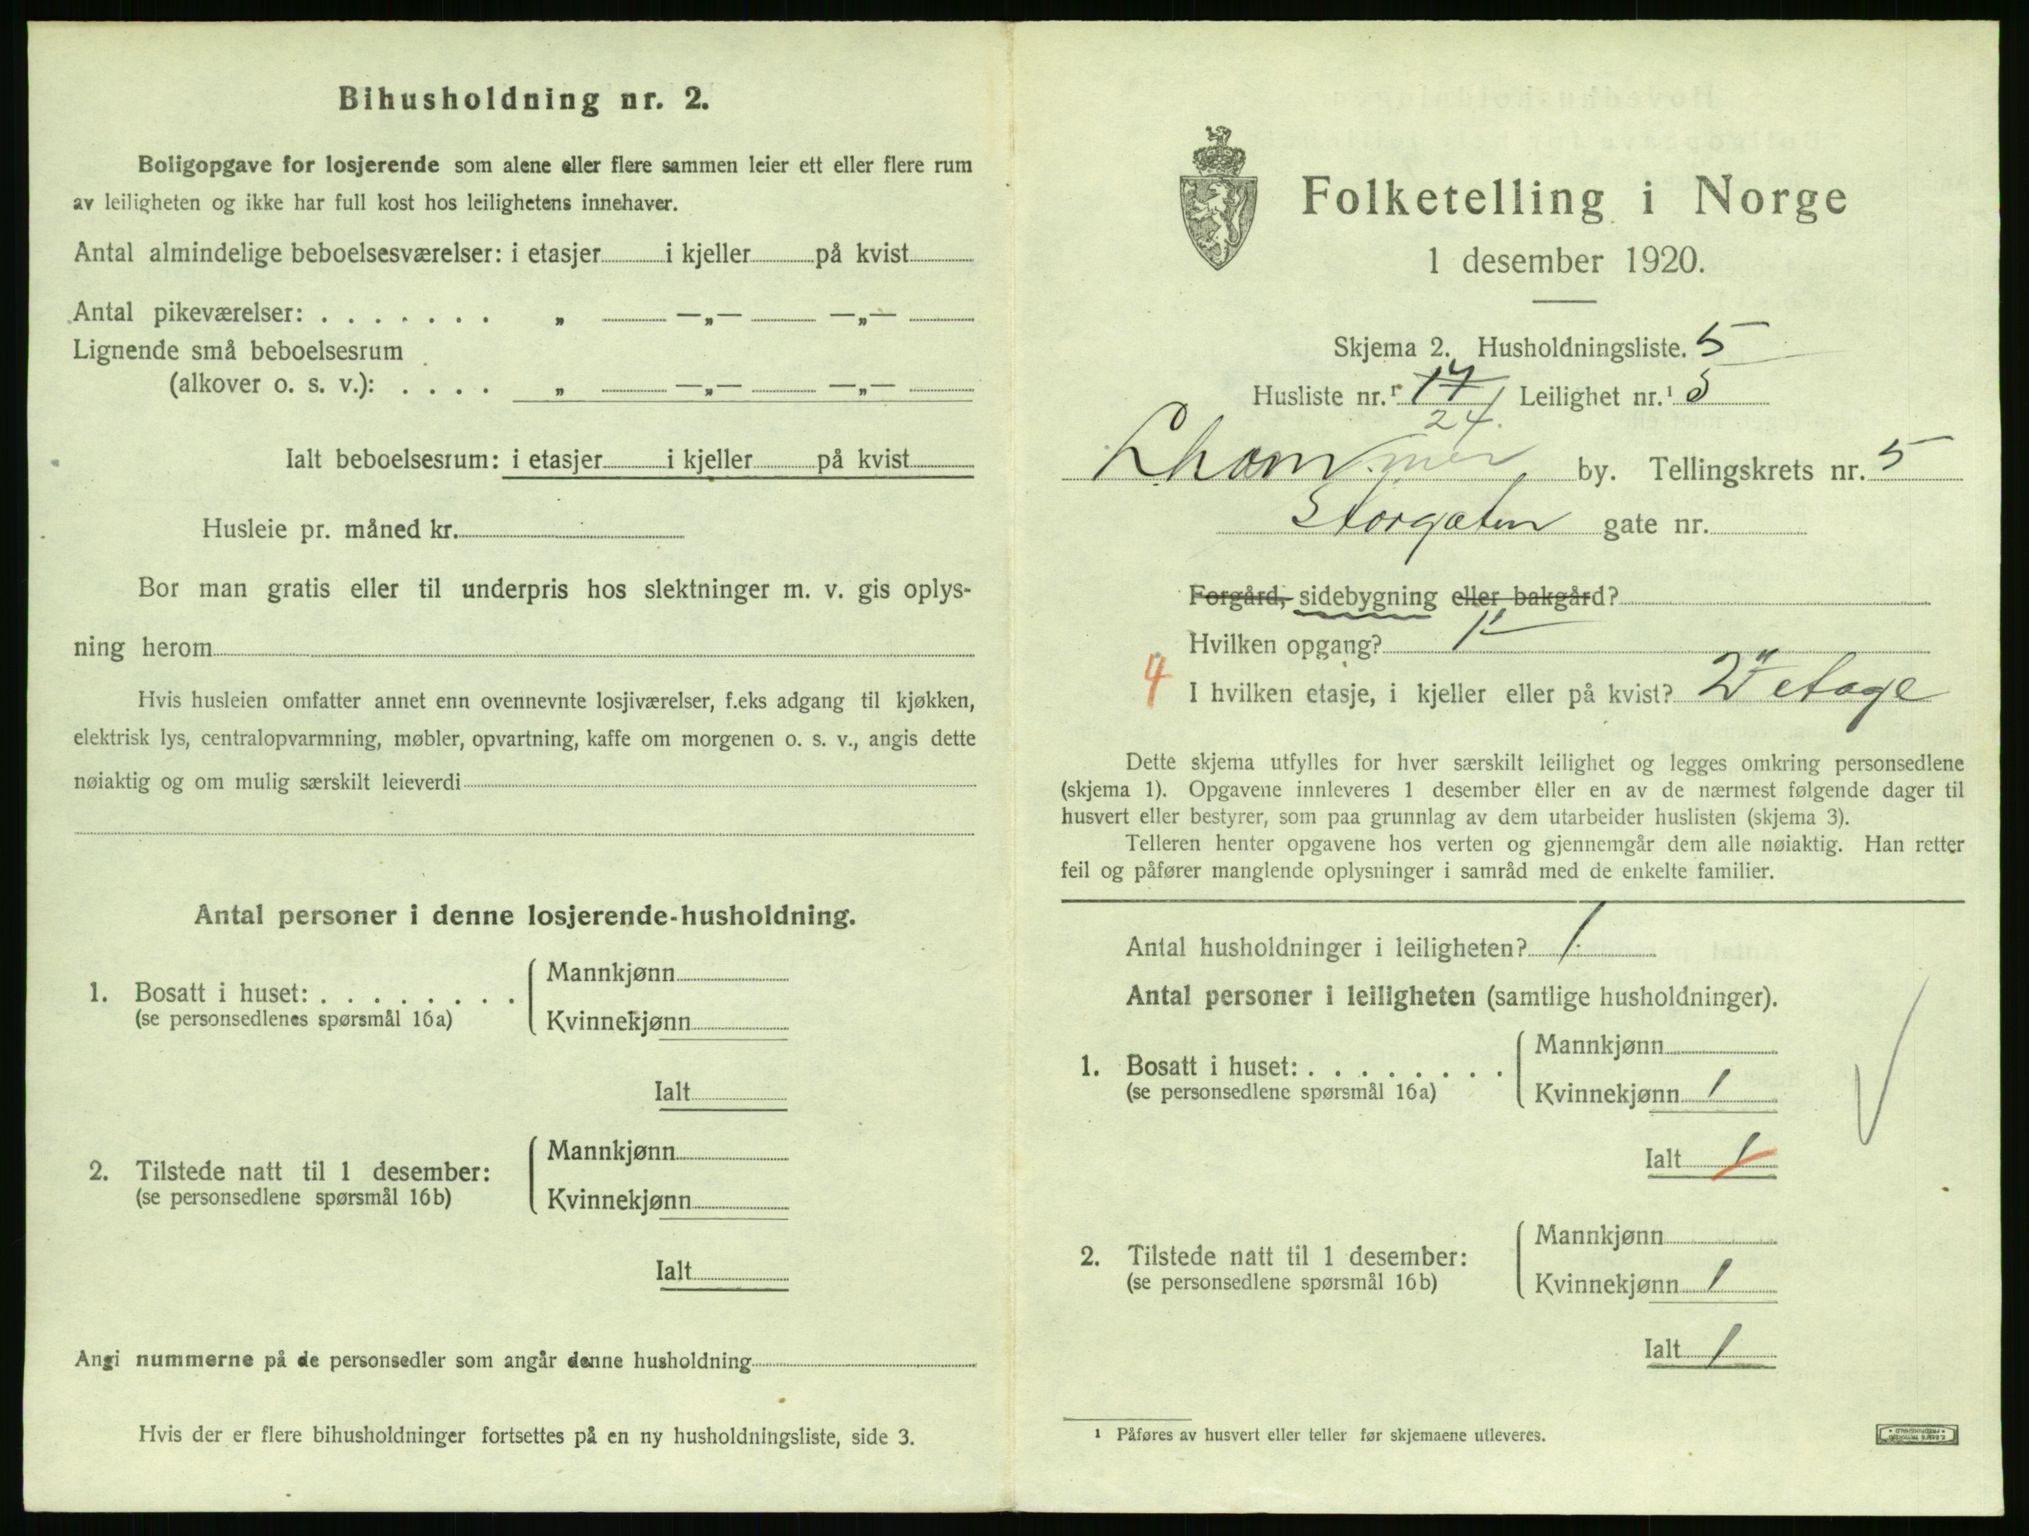 Bihusholdning nr. 2.
Boligopgave for losjerende som alene eller flere sammen leier ett eller flere rum
av leiligheten og ikke har full kost hos leilighetens innehaver.
Antal almindelige beboelsesværelser: i etasjer i kjeller på kvist
Antal pikeværelser: . . . . . . . „ —„— —„—
Lignende små beboelsesrum
(alkover o. s. v.): . . . . „ —„— —„—
Ialt beboelsesrum: i etasjer i kjeller på kvist
Husleie pr. måned kr.
Bor man gratis eller til underpris hos slektninger m. v. gis oplys-
ning herom
Hvis husleien omfatter annet enn ovennevnte losjiværelser, f.eks adgang til kjøkken,
elektrisk lys, centralopvarmning, møbler, opvartning, kaffe om morgenen o. s. v., angis dette
nøiaktig og om mulig særskilt leieverdi
Antal personer i denne losjerende-husholdning.
1. Bosatt i huset: . . . . . . . .
(se personsedlenes spørsmål 16a)
Mannkjønn
Kvinnekjønn
Ialt
2. Tilstede natt til 1 desember:
(se personsedlene spørsmål 16b)
Mannkjønn
Kvinnekjønn
Ialt
Angi nummerne på de personsedler som angår denne husholdning
Hvis der er flere bihusholdninger fortsettes på en ny husholdningsliste, side 3.
Folketelling i Norge
1 desember 1920.
Skjema 2. Husholdningsliste. 5
Husliste nr.¹ 14 Leilighet nr.¹ 5
24.
Lhammer by. Tellingskrets nr. 5
Storgaten gate nr.
Forgård, sidebygning eller bakgård?
Hvilken opgang? 1
4 I hvilken etasje, i kjeller eller på kvist? 2 etage
Dette skjema utfylles for hver særskilt leilighet og legges omkring personsedlene
(skjema 1). Opgavene innleveres 1 desember eller en av de nærmest følgende dager til
husvert eller bestyrer, som paa grunnlag av dem utarbeider huslisten (skjema 3).
Telleren henter opgavene hos verten og gjennemgår dem alle nøiaktig. Han retter
feil og påfører manglende oplysninger i samråd med de enkelte familier.
Antal husholdninger i leiligheten? 1
Antal personer i leiligheten (samtlige husholdninger).
1. Bosatt i huset: . . . . . . . .
(se personsedlene spørsmål 16a)
Mannkjønn
Kvinnekjønn 1
Ialt 1
2. Tilstede natt til 1 desember:
(se personsedlene spørsmål 16b)
Mannkjønn
Kvinnekjønn 1
Ialt 1
¹ Påføres av husvert eller teller før skjemaene utleveres.